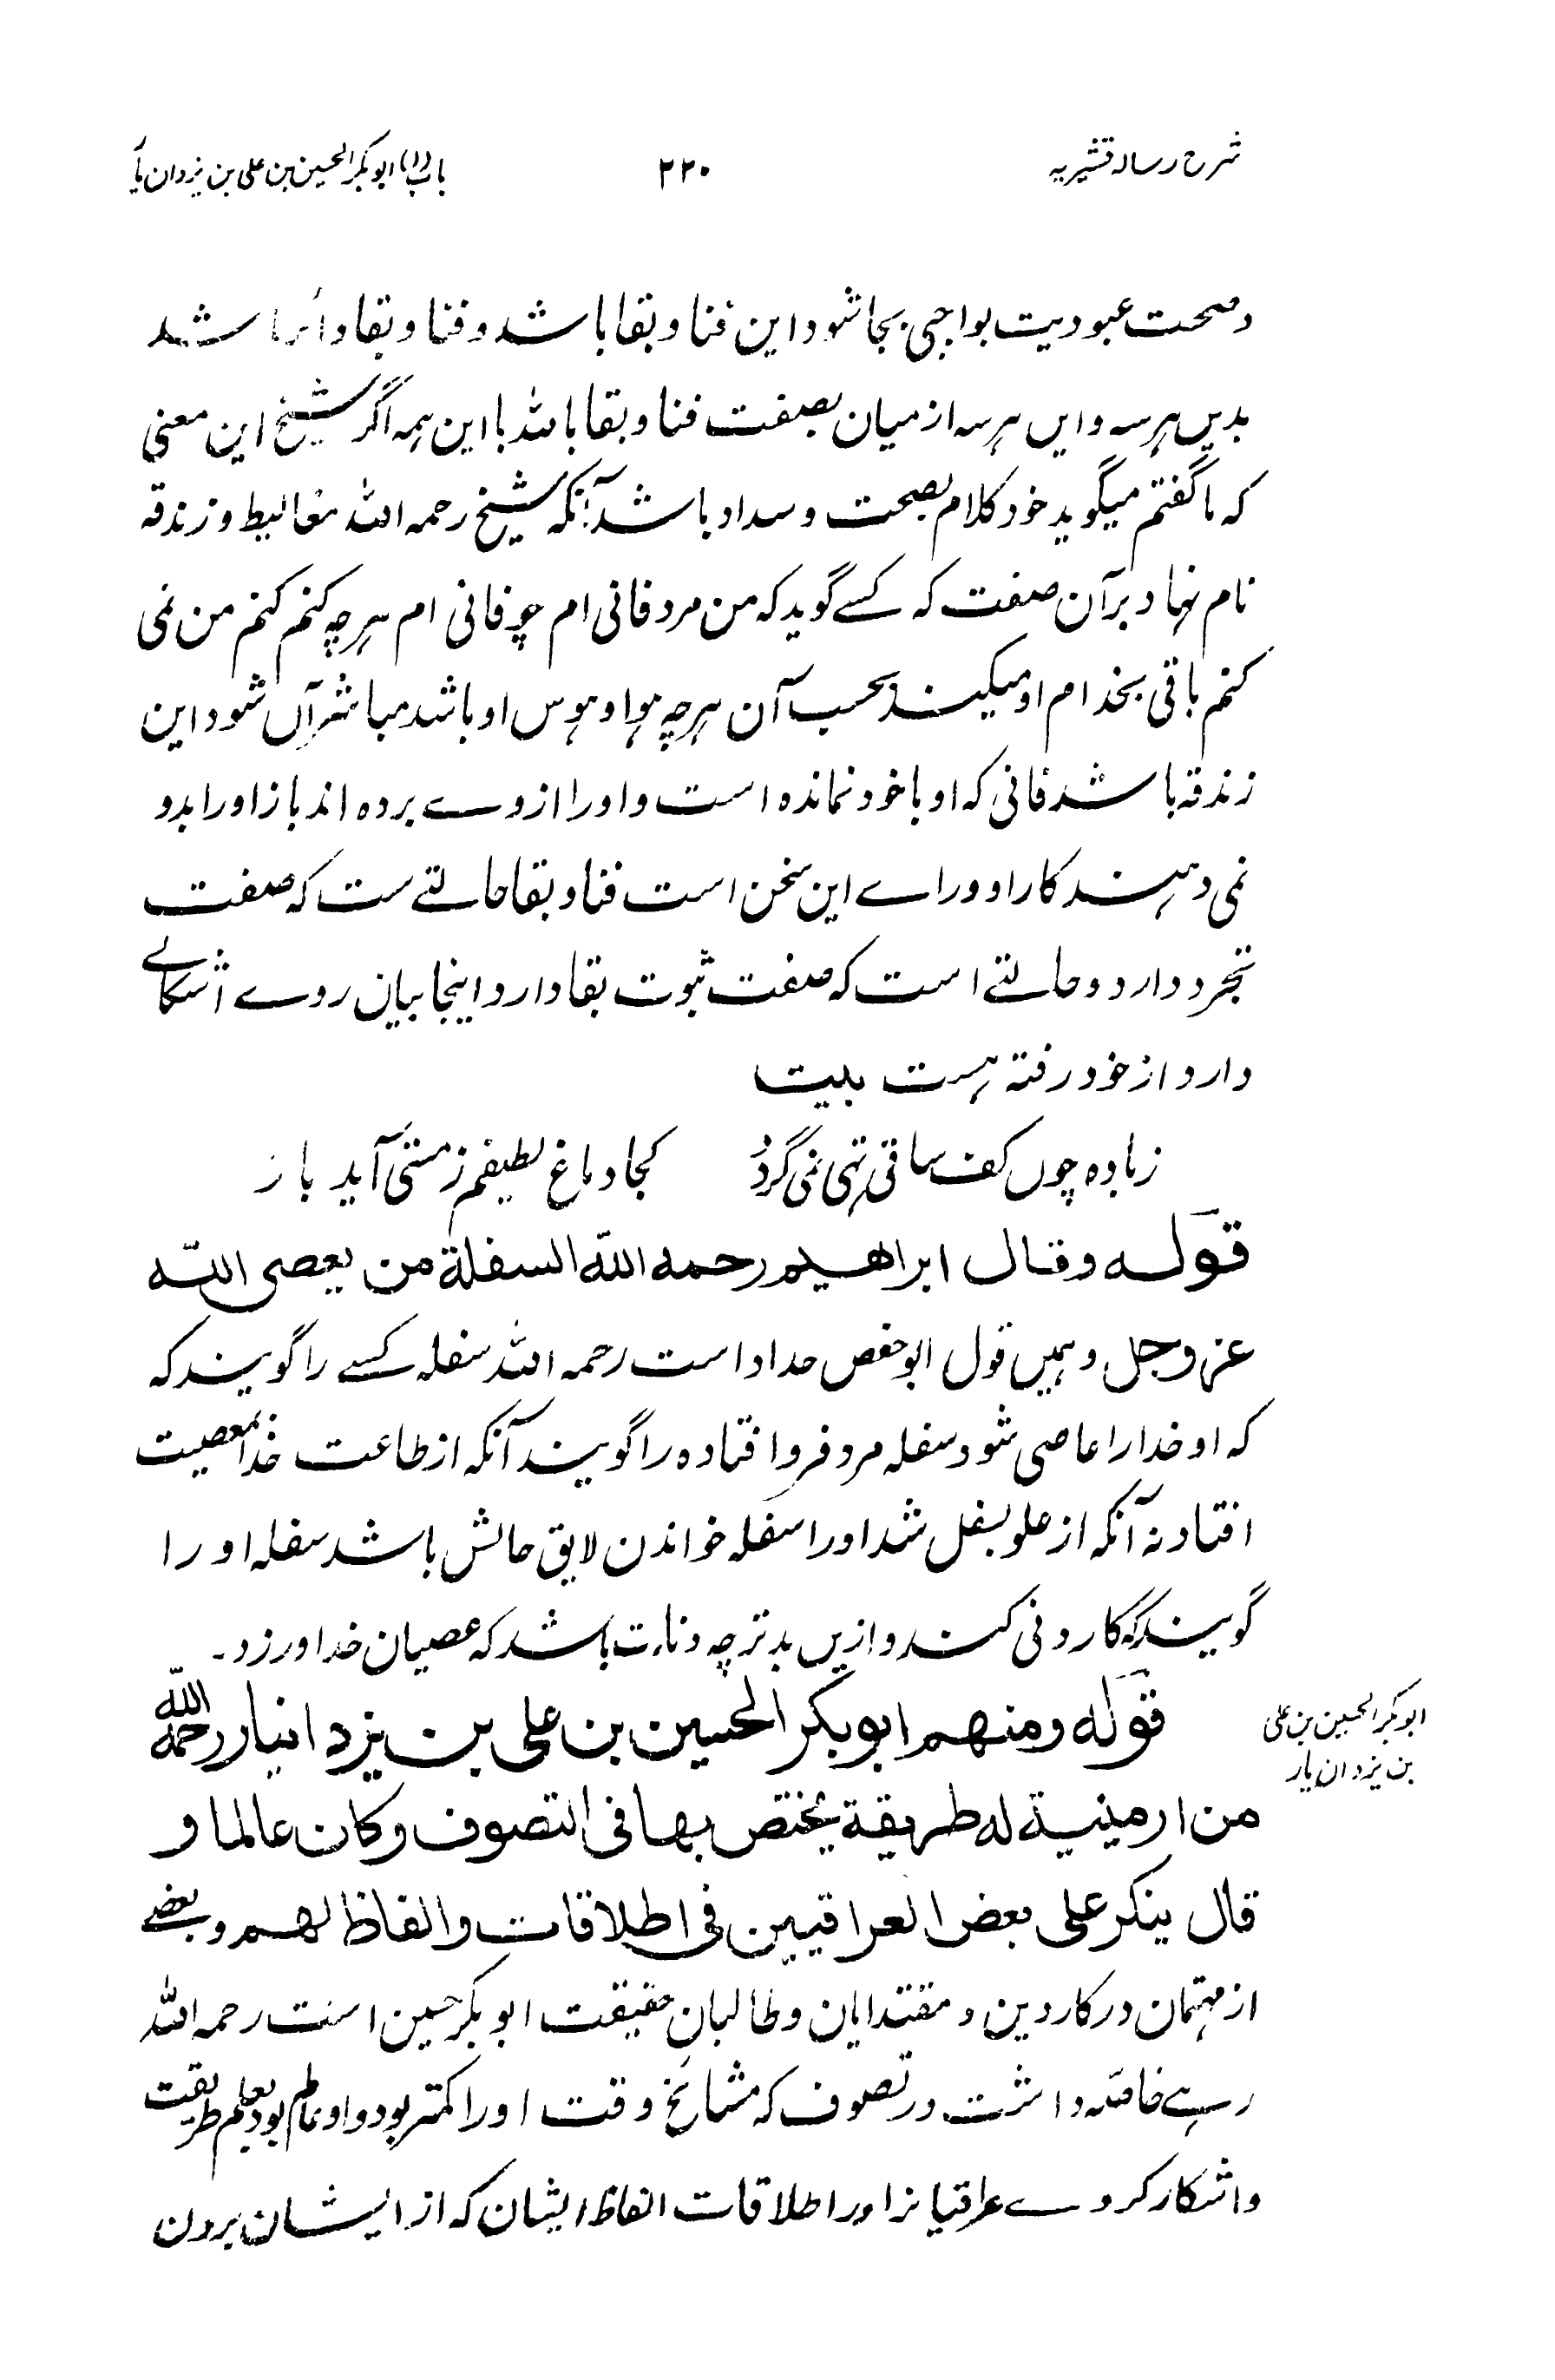 شرح رسالہ قشیریہ
۲۲۰
باب (۱) ابوبکر الحسین بن علی بن یزدان یار
و صحت عبودیت بواجبی بجا شود این فنا و بقا باشد و فنا و بقا دائر باشد
بدیں ہر سہ و ایں ہر سہ از میان بصفت فنا و بقا باللہ با این ہمہ اگر شیخ این معنی
کہ ما گفتم میگوید خود کلام بصحت و سداد باشد آنکہ شیخ رحمہ اللہ مغالیط و زندقہ
نام نہاد بر آن صفت کہ کسے گوید کہ من مرد فانی ام چو فانی ام ہر چہ کنم کنم من نمی
کنم باقی بخدا ام او میکند بحسب آن ہر چہ ہوا و ہوس او باشد مباشر آں شود این
زندقہ باشد فانی کہ او با خود نماندہ است و او را از وے بردہ اند باز او را بدو
نمی دہند کار او ورا ے این سخن است فنا و بقا حالتے ست کہ صفت
تجرد دارد و حالتے است کہ صفت ثبوت بقا دارد اینجا بیان روے اشکالے
دارد از خود رفتہ ہست بیت
زبادہ چوں کف ساقی تہی نمی گردد کجا دماغ لطیفم ز مستی آید باز
قولہ وقال ابراھیم رحمہ اللہ السفلة من یعصی اللہ
عز وجل و ہمیں قول ابو حفص حداد است رحمہ اللہ سفلہ کسے را گویند کہ
کہ او خدا را عاصی شود سفلہ مرد فرو افتادہ را گویند آنکہ از طاعت خدا بمعصیت
افتاد نہ آنکہ از علو بسفل شد او را سفلہ خواندن لایق حالش باشد سفلہ او را
گویند کہ کار دنی کند و ازیں بدتر چہ دناءت باشد کہ عصیان خدا ورزد۔
قولہ ومنھم ابوبکر الحسین بن علی بن یزدانیار رحمہ اللہ
ابوبکر الحسین بن علی
بن یزدان یار
من ارمینیة لہ طریقة یختص بھا فی التصوف وکان عالما و
قال ینکر علی بعض العراقیین فی اطلاقات والفاظ لھم و بعضے
از مہتمان در کار دین و مقتدایان و طالبان حقیقت ابوبکر حسین است رحمہ اللہ
رہے خاصہ داشت در تصوف کہ مشائخ وقت او را کمتر بود و او عالم بود بعلم طریقت
و اشکار کردے عراقیان را در اطلاقات الفاظ ایشان کہ از ایشان برون